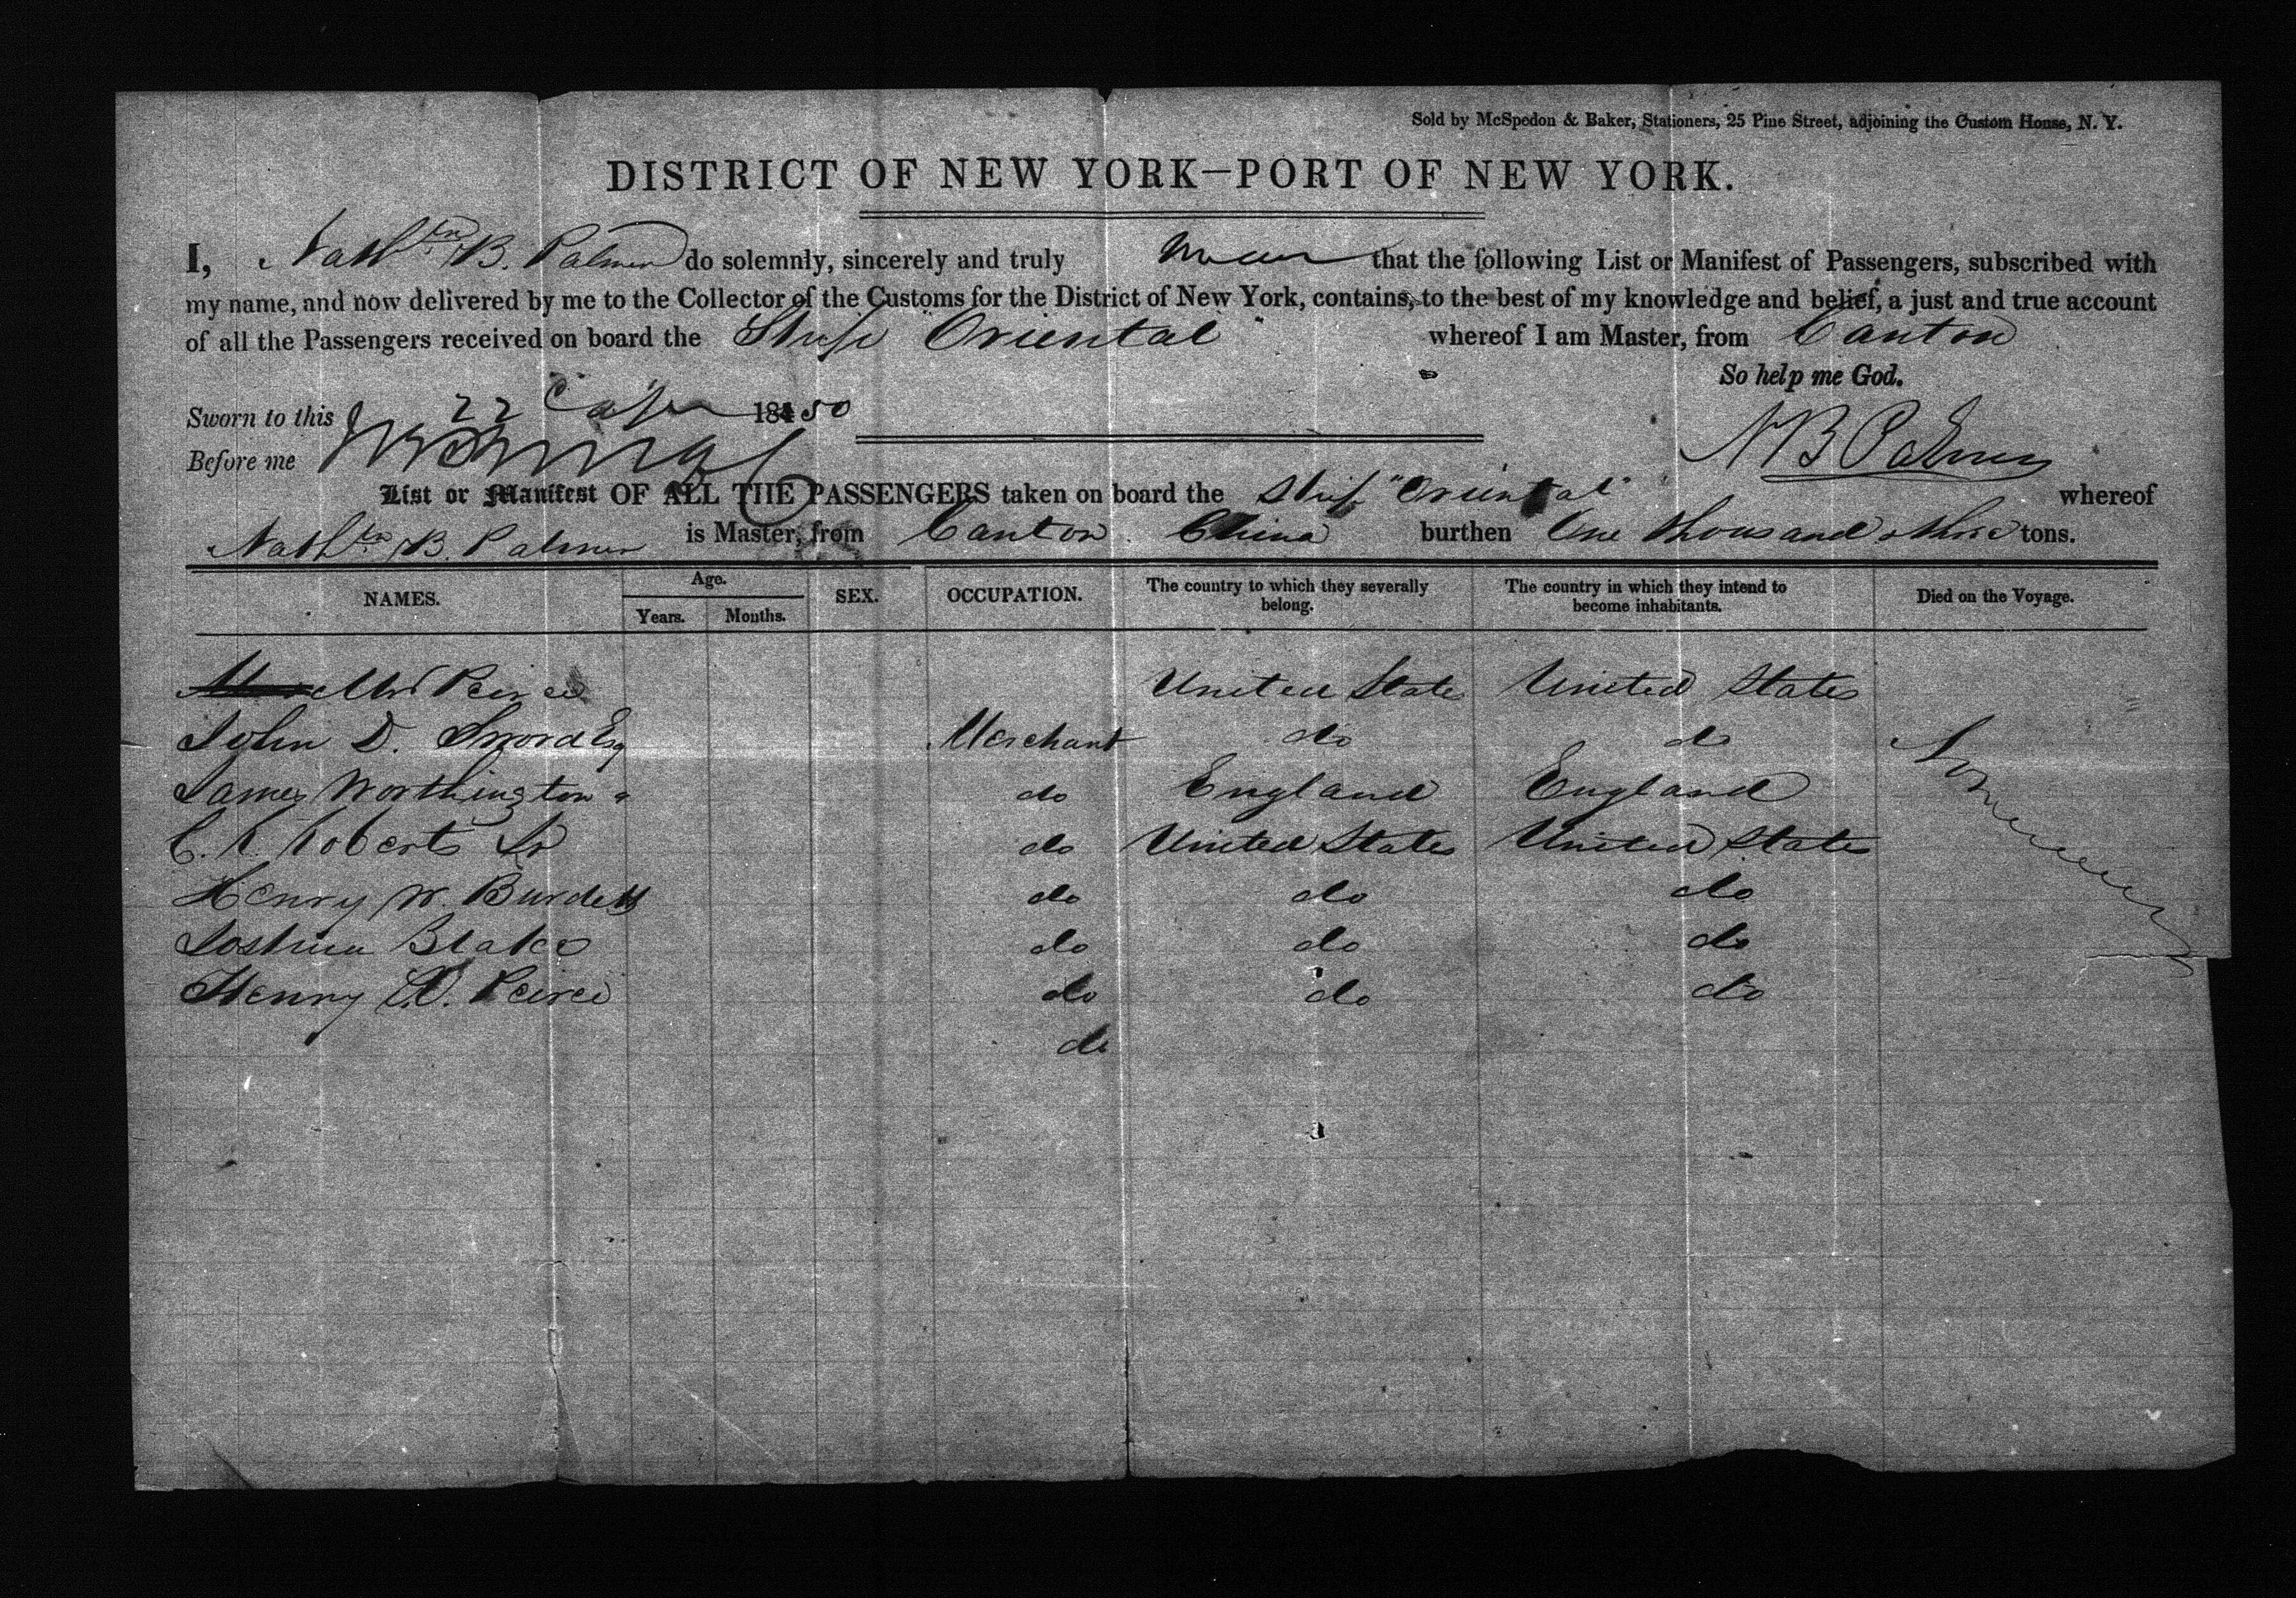 Sold by McSpedon & Baker, Stationers, 25 Pine Street, adjoining the Custom House, N. Y.
DISTRICT OF NEW YORK—PORT OF NEW YORK.
I, Nathn B. Palmer do solemnly, sincerely and truly swear that the following List or Manifest of Passengers, subscribed with
my name, and now delivered by me to the Collector of the Customs for the District of New York, contains, to the best of my knowledge and belief, a just and true account
of all the Passengers received on board the Ship "Oriental" whereof I am Master, from Canton
So help me God.
Sworn to this 22 Apr 18450
Before me
N B Palmer
List or Manifest OF ALL THE PASSENGERS taken on board the Ship "Oriental" whereof
Nathn B. Palmer is Master, from Canton China burthen One thousand three tons.
NAMES. Age. Years. Months. SEX. OCCUPATION. The country to which they severally belong. The country in which they intend to become inhabitants. Died on the Voyage.
Mrs Peirce United States United States
John D. Sword Esq Merchant do do
James Worthington " do England England
C. R. Roberts Jr do United States United States
Henry W. Burdett do do do
Joshua Blake do do do
Henry A. Peirce do do do
do